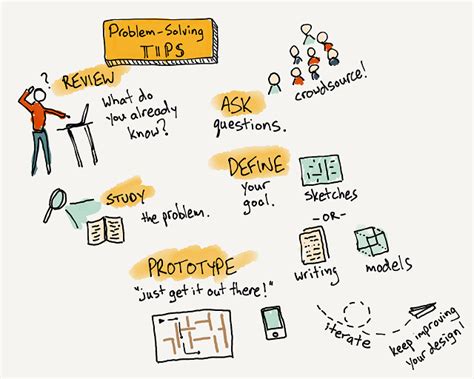 Problem-Solving
TIPS
?
REVIEW
What do
you already
know?
ASK
questions.
crowdsource!
STUDY
the problem.
DEFINE
your
goal.
sketches
-OR-
writing
models
PROTOTYPE
"just get it out there!"
iterate
keep improving
your design!